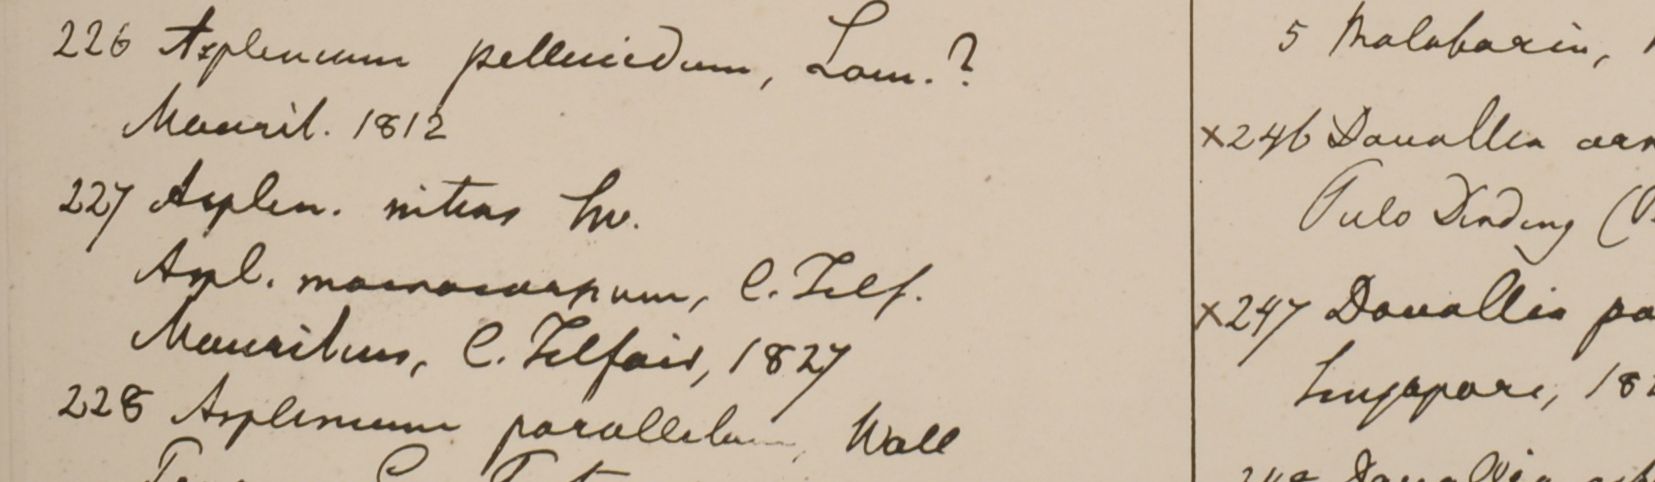 226 Asplenium pellucidum, Lam.?
Maurit. 1812
227 Asplen. nitens Sw.
Aspl. macrocarpum, C. Telf.
Mauritius, C. Telfair, 1827
228 Asplenium parallelum, Wall
5 Malabaria,
×246 Davallia
Pulo Dinding (
×247 Davallia pa
Singapore, 182
248 Davallia